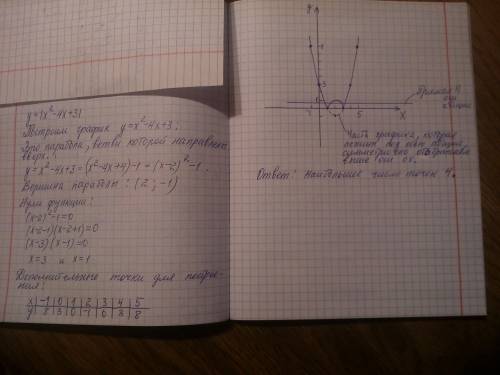 y=|x²-4x+3|
Построим график y=x²-4x+3.
Это парабола, ветви которой направлены
вверх.
y=x²-4x+3=(x²-4x+4)-1=(x-2)²-1.
Вершина параболы: (2;-1)
Нули функции:
(x-2)²-1=0
(x-2-1)(x-2+1)=0
(x-3)(x-1)=0
x=3 и x=1
Дополнительные точки для построе-
ния:
x|-1|0|1|2|3|4|5
y|8|3|0|-1|0|3|8
y
3
1
-1
5
X
Прямая ||
оси
абсцисс
Часть графика, которая
лежит под осью абсцисс,
симметрично
выше оси ox.
Ответ: наибольшее число точек 4.